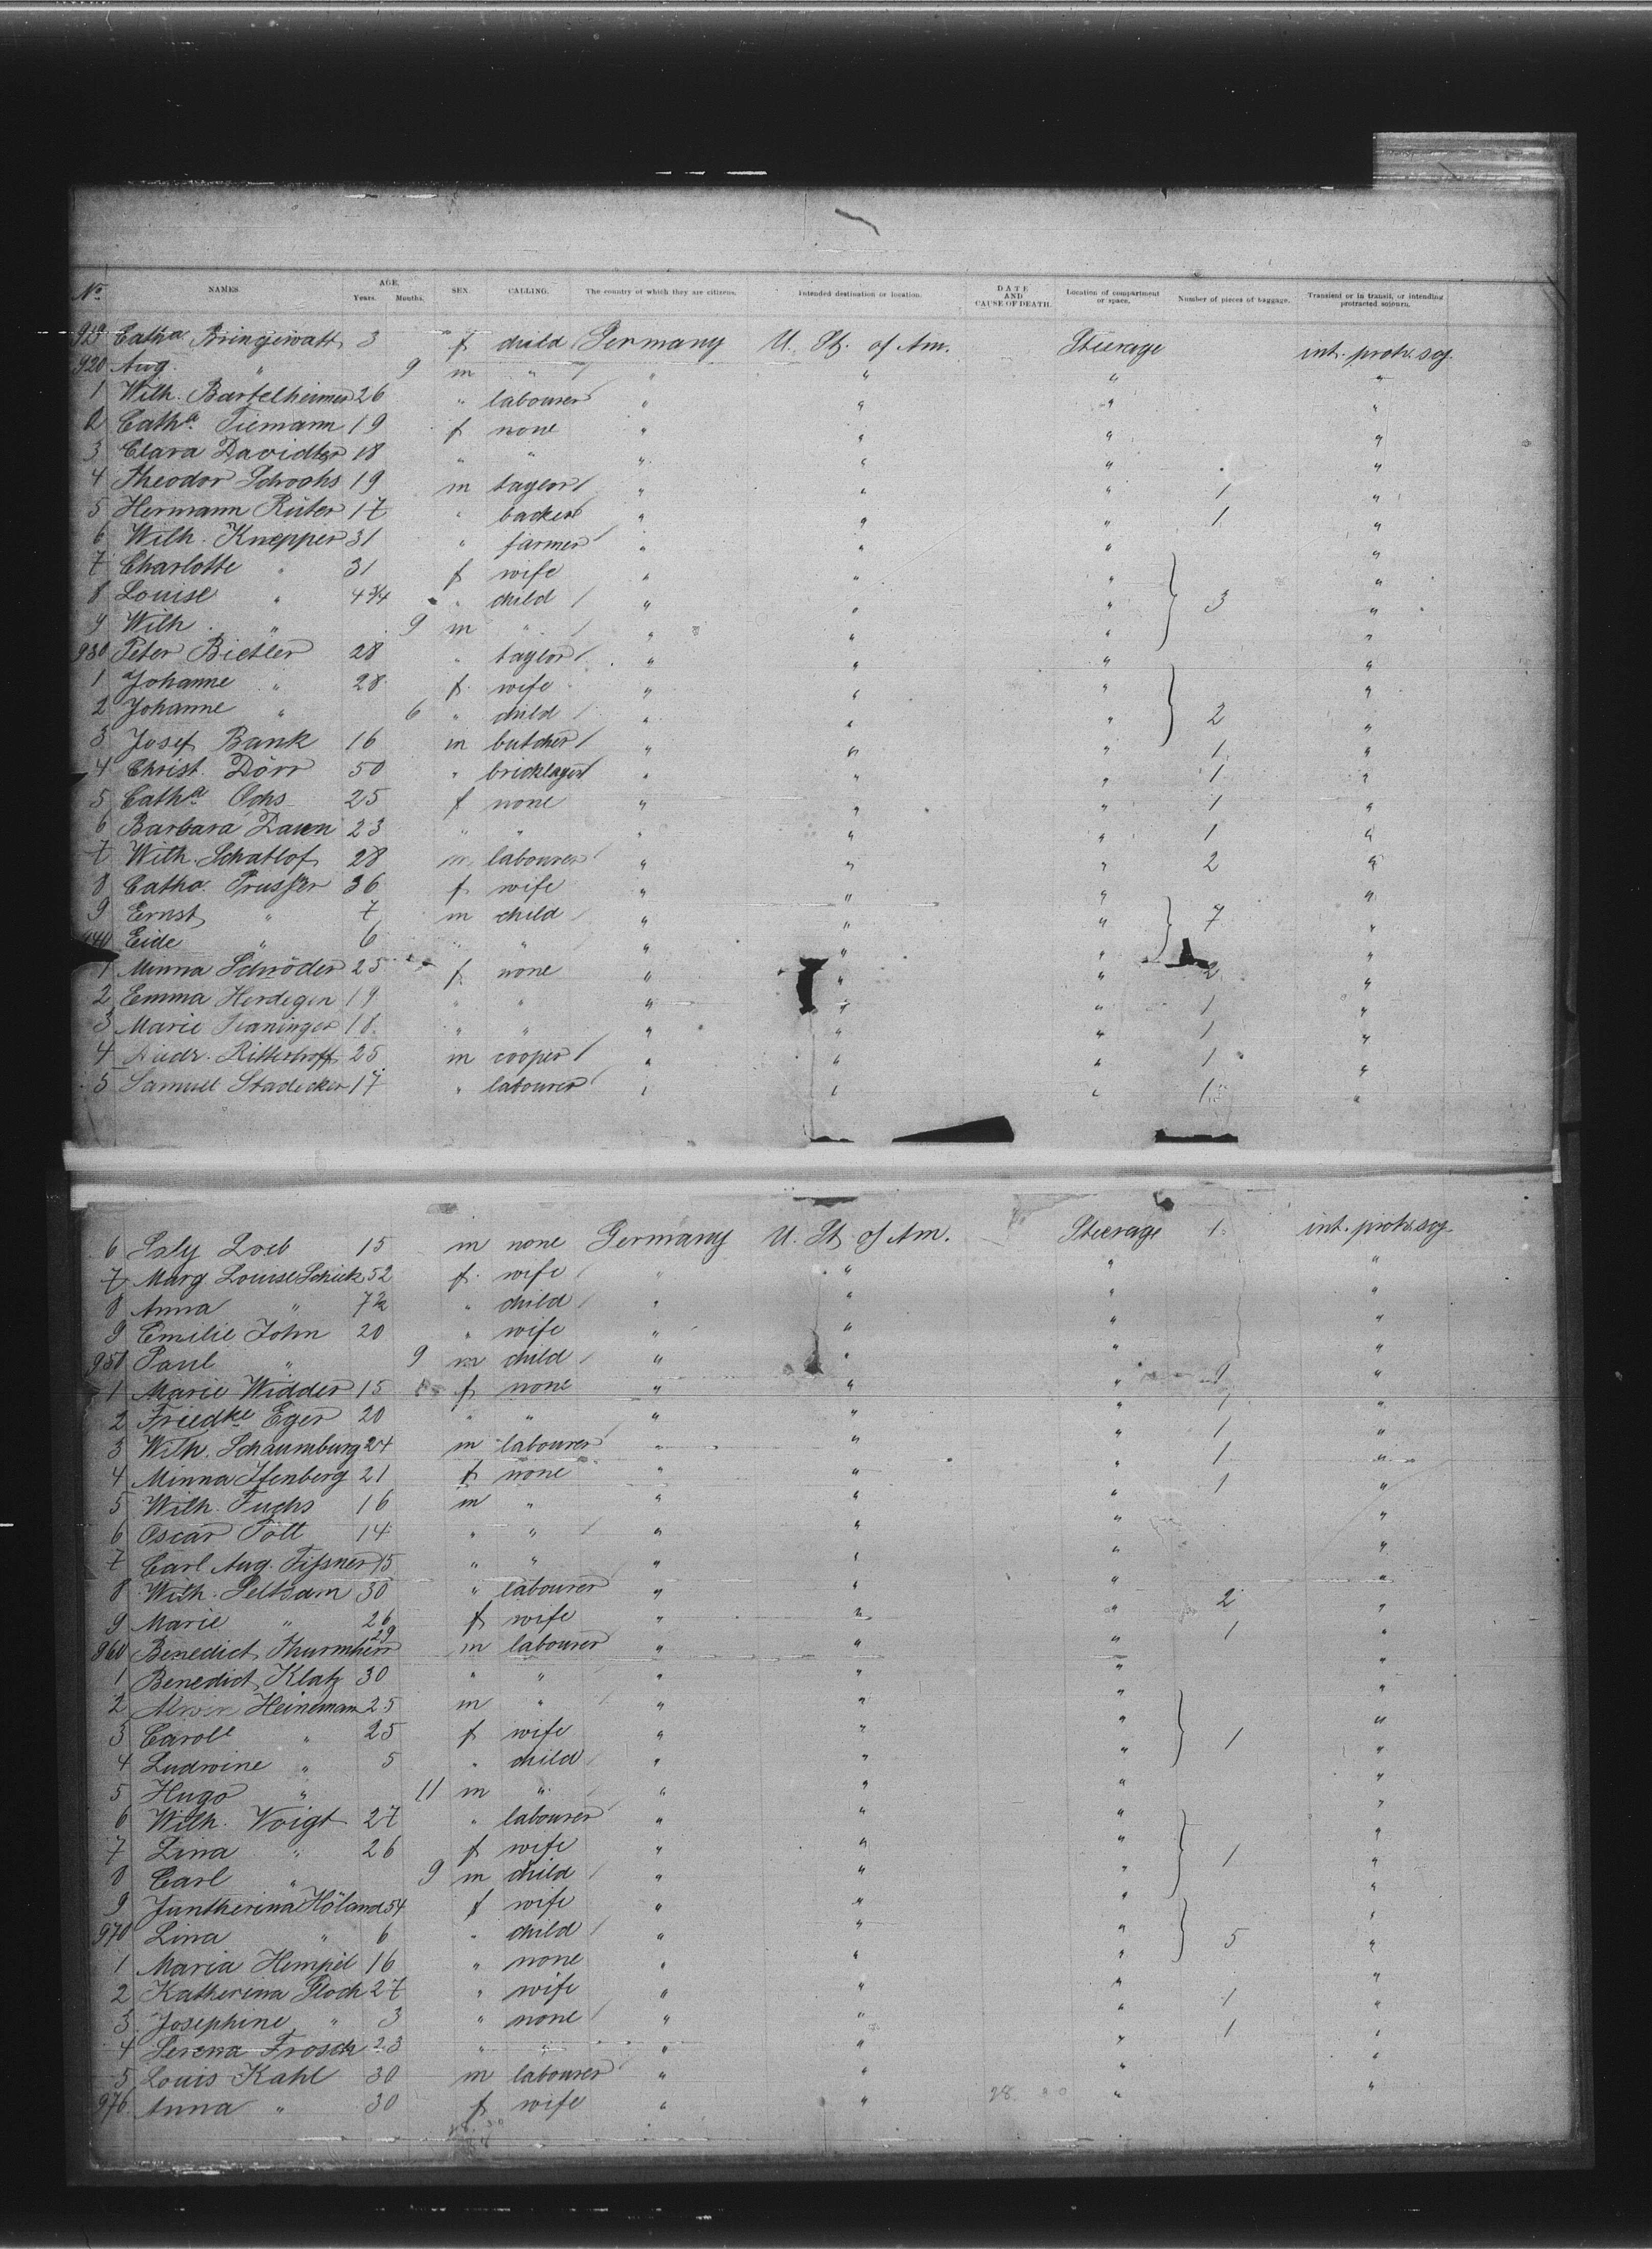 No. NAMES AGE. Years. Months. SEX. CALLING. The country of which they are citizens. Intended destination or location. DATE AND CAUSE OF DEATH. Location of compartment or space. Number of pieces of baggage. Transient or in transit, or intending protracted sojourn.
919 Catha Bringewatt 3 f child Germany U. St. of Am. Steerage int. protr. soj.
920 Aug. " 9 m " " " " "
1 Wilh. Bartelheimer 26 " labourer " " " "
2 Catha Tiemann 19 f none " " " "
3 Clara 18 " " " " " "
4 Theodor 19 m taylor " " " 1 "
5 Hermann Rüter 17 " backer " " " 1 "
6 Wilh. Knepper 31 " farmer " " " "
7 Charlotte " 31 f wife " " " "
8 Louise " 4 3/4 " child " " " 3 "
9 Wilh. " 9 m " " " " "
930 Peter Bietler 28 " taylor " " " "
1 Johanne " 28 f. wife " " " "
2 Johanne " 6 " child " " " 2 "
3 Josef Bank 16 m butcher " " " 1 "
4 Christ. Dörr 50 " bricklayer " " " 1 "
5 Catha Ochs 25 f none " " " 1 "
6 Barbara Daun 23 " " " " " 1 "
7 Wilh. Schatlof 28 m labourer " " " 2 "
8 Catha. Prusser 36 f wife " " " "
9 Ernst " 7 m child " " " 7 "
940 Eide " 6 " " " " " "
1 Minna Schröder 25 f none " " " 2 "
2 Emma Herdegen 19 " " " " " 1 "
3 Marie 18 " " " " " 1 "
4 Friedr. Ritterhoff 25 m cooper " " " 1 "
5 Samuel Stadecker 17 " labourer " " " 1 "
6 Saly Loeb 15 m none Germany U. St. of Am. Steerage 1 int. protr. soj.
7 Marg Louise Schick 52 f. wife " " " "
8 Anna " 7 1/2 " child " " " "
9 Emilie John 20 " wife " " " "
950 Paul " 9 m child " " " "
1 Marie Widder 15 f none " " " 1 "
2 Friedke Eger 20 " " " " " 1 "
3 Wilh. Schaumburg 24 m labourer " " " 1 "
4 Minna Isenberg 21 f none " " " 1 "
5 Wilh. Fuchs 16 m " " " " 1 "
6 Oscar Tölt 14 " " " " " "
7 Carl Aug. Fissner 15 " " " " " "
8 Wilh. Seltsam 30 " labourer " " " "
9 Marie " 26 f wife " " " 2 "
960 Benedict Thurmherr 29 m labourer " " " 1 "
1 Benedict Klatz 30 " " " " " "
2 Heineman 25 m " " " " "
3 Carole " 25 f wife " " " 1 "
4 Ludwine " 5 " child " " " "
5 Hugo " 11 m " " " " "
6 Wilh. Voigt 27 " labourer " " " "
7 Lina " 26 f wife " " " 1 "
8 Carl " 9 m child " " " "
9 Höland 54 f wife " " " "
970 Lina " 6 " child " " " 5 "
1 Maria Hempel 16 " none " " " "
2 Katherina Ploch 27 " wife " " " 1 "
3 Josephine " 3 " none " " " 1 "
4 Serena Frosch 23 " " " " " "
5 Louis Kahl 30 m labourer " " " "
976 Anna " 30 f wife " " " "